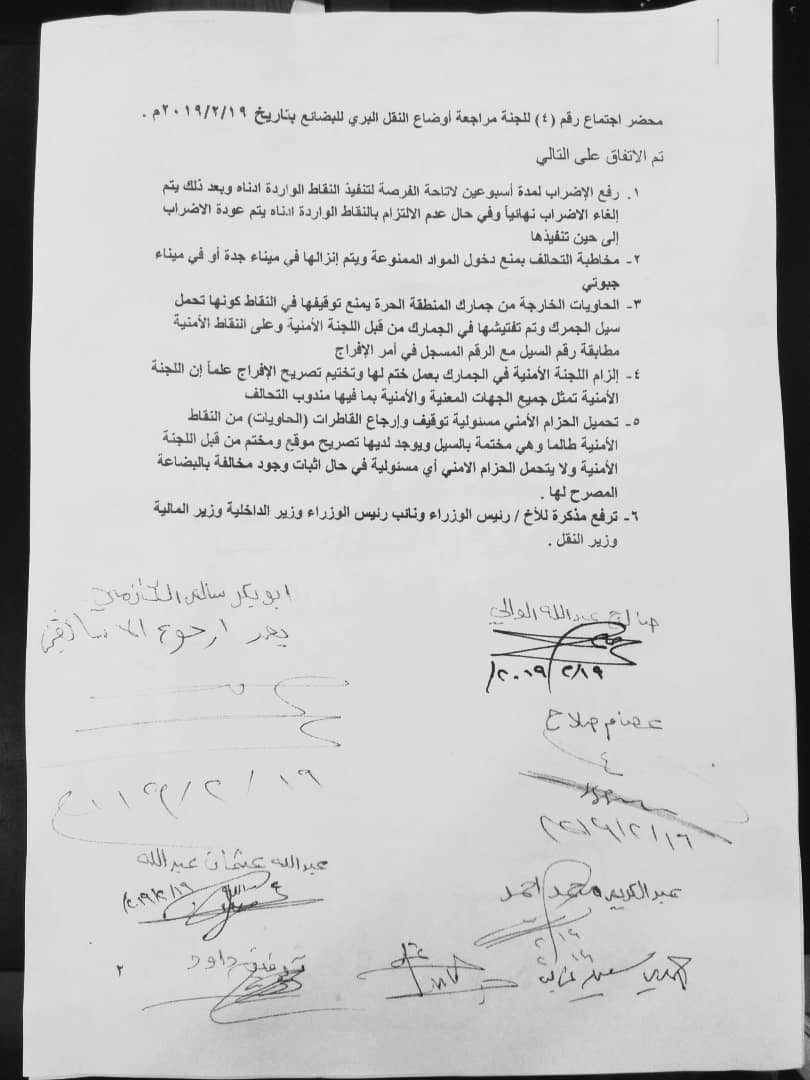 محضر اجتماع رقم (٤) للجنة مراجعة أوضاع النقل البري للبضائع بتاريخ ٢٠١٩/٢/١٩م .
تم الاتفاق على التالي
١. رفع الإضراب لمدة أسبوعين لاتاحة الفرصة لتنفيذ النقاط الواردة ادناه وبعد ذلك يتم
إلغاء الاضراب نهائياً وفي حال عدم الالتزام بالنقاط الواردة ادناه يتم عودة الاضراب
إلى حين تنفيذها
٢- مخاطبة التحالف بمنع دخول المواد الممنوعة ويتم إنزالها في ميناء جدة أو في ميناء
جبوتي
٣- الحاويات الخارجة من جمارك المنطقة الحرة يمنع توقيفها في النقاط كونها تحمل
سيل الجمرك وتم تفتيشها في الجمارك من قبل اللجنة الأمنية وعلى النقاط الأمنية
مطابقة رقم السيل مع الرقم المسجل في أمر الإفراج
٤- إلزام اللجنة الأمنية في الجمارك بعمل ختم لها وتختيم تصريح الإفراج علماً إن اللجنة
الأمنية تمثل جميع الجهات المعنية والأمنية بما فيها مندوب التحالف
٥- تحميل الحزام الأمني مسئولية توقيف وإرجاع القاطرات (الحاويات) من النقاط
الأمنية طالما وهي مختمة بالسيل ويوجد لديها تصريح موقع ومختم من قبل اللجنة
الأمنية ولا يتحمل الحزام الامني أي مسئولية في حال اثبات وجود مخالفة بالبضاعة
المصرح لها .
٦- ترفع مذكرة للأخ / رئيس الوزراء ونائب رئيس الوزراء وزير الداخلية وزير المالية
وزير النقل .
صالح عبدالله الوالي
٢٠١٩/٢/١٩
ابوبكر سالم الكازمي
١٩/٢/٢٠١٩م
عصام صلاح
عبدالله عثمان عبدالله
٢٠١٩/٢/١٩
عبدالكريم محمد احمد
٢
توفيق داود